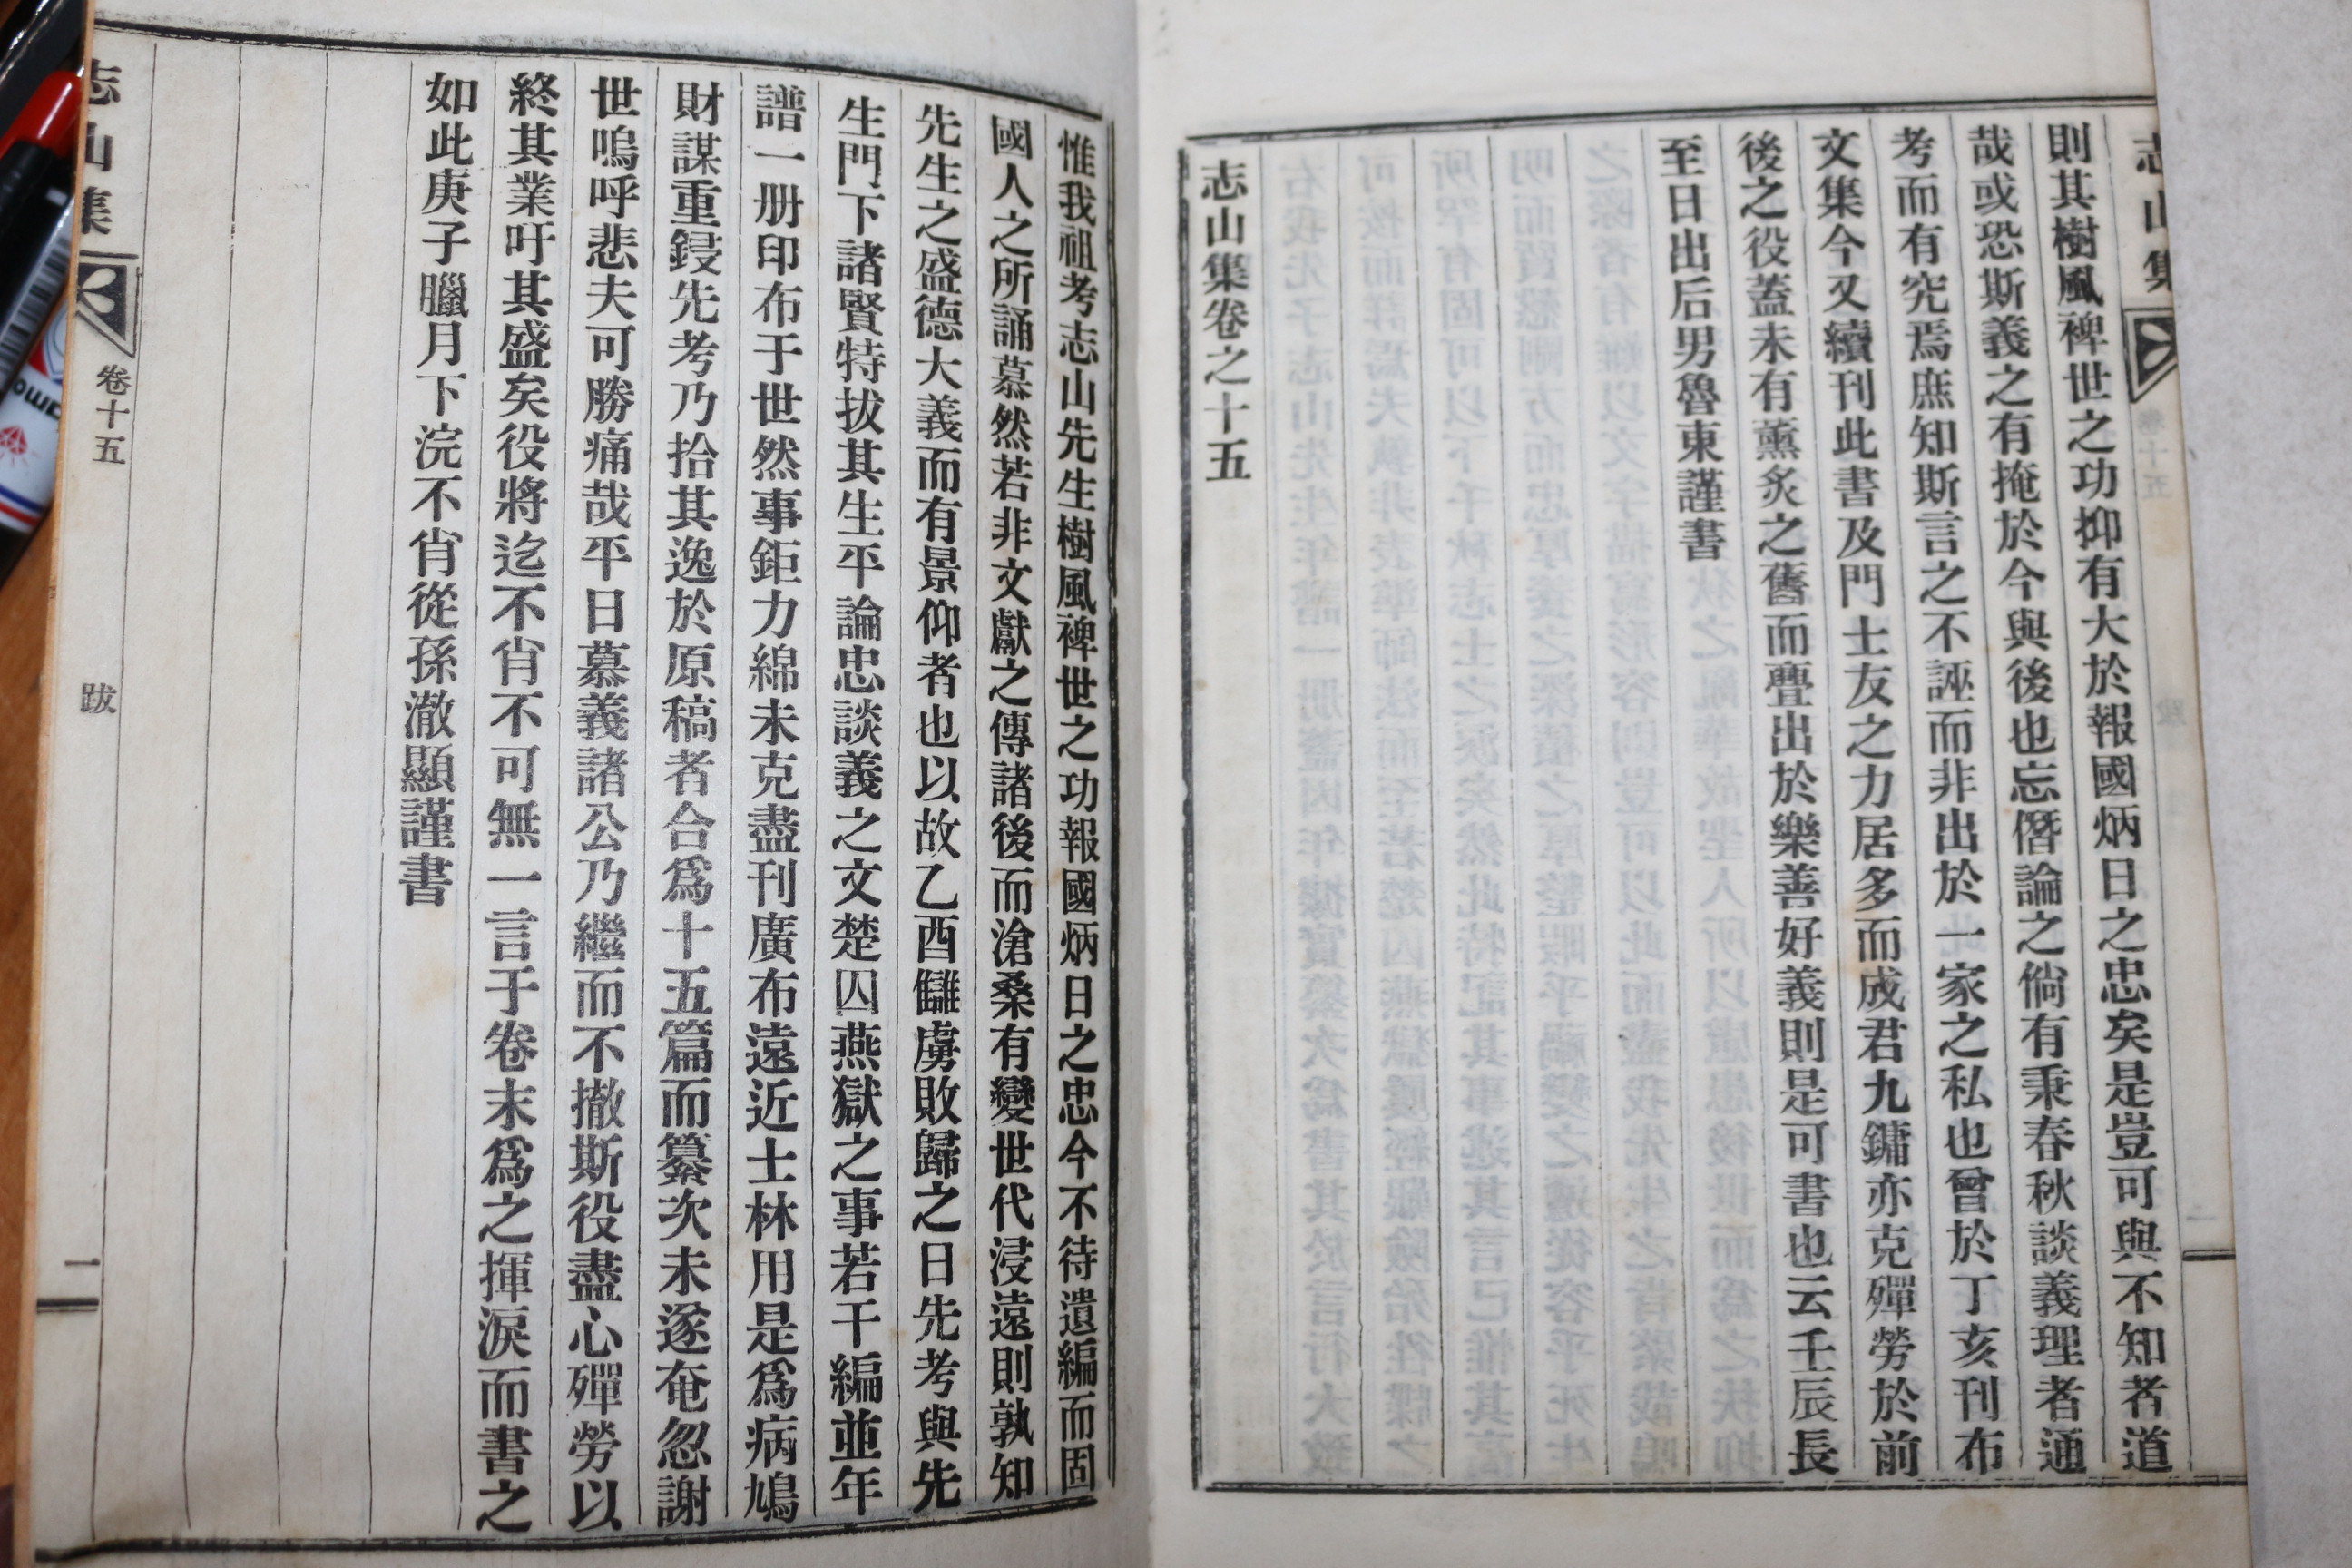 志山集
則其樹風裨世之功抑有大於報國炳日之忠矣是豈可與不知者道
哉或恐斯義之有掩於今與後也忘僭論之倘有秉春秋談義理者通
考而有究焉庶知斯言之不誣而非出於一家之私也曾於丁亥刊布
文集今又續刊此書及門士友之力居多而成君九鏞亦克殫勞於前
後之役蓋未有薰炙之舊而亹出於樂善好義則是可書也云壬辰長
至日出后男魯東謹書
志山集卷之十五
惟我祖考志山先生樹風裨世之功報國炳日之忠今不待遺編而固
國人之所誦慕然若非文獻之傳諸後而滄桑有變世代浸遠則孰知
先生之盛德大義而有景仰者也以故乙酉讎虜敗歸之日先考與先
生門下諸賢特拔其生平論忠談義之文楚囚燕獄之事若干編並年
譜一册印布于世然事鉅力綿未克盡刊廣布遠近士林用是爲病鳩
財謀重鋟先考乃拾其逸於原稿者合爲十五篇而纂次未遂奄忽謝
世嗚呼悲夫可勝痛哉平日慕義諸公乃繼而不撤斯役盡心殫勞以
終其業吁其盛矣役將迄不肖不可無一言于卷末爲之揮淚而書之
如此庚子臘月下浣不肖從孫澈顯謹書
志山集 卷十五 跋 一